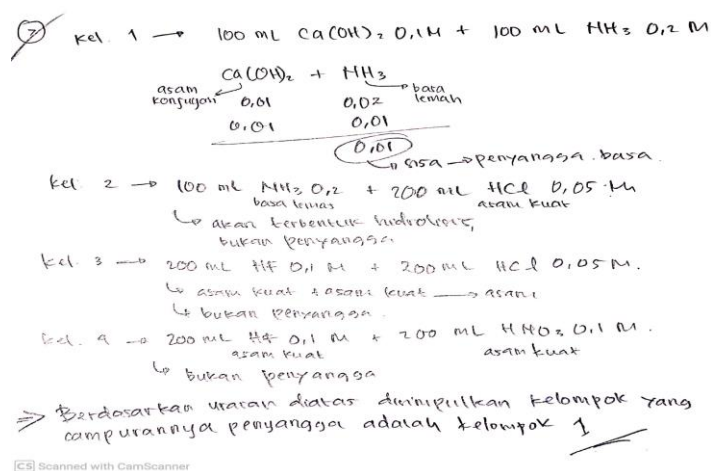 7 Kel. 1 → 100 mL Ca(OH)₂ 0,1M + 100 mL NH₃ 0,2 M
Ca(OH)₂ + NH₃
asam konjugasi
basa lemah
0,01 0,02
0,01 0,01
0,01
sisa → penyangga basa
Kel. 2 → 100 mL NH₃ 0,2 + 200 mL HCl 0,05 M
basa lemas
asam kuat
↳ akan terbentuk hidrolisis,
bukan penyangga
Kel. 3 → 200 mL HF 0,1 M + 200 mL HCl 0,05 M.
↳ asam kuat + asam kuat → asam
↳ bukan penyangga
Kel. 4 → 200 mL HF 0,1 M + 200 mL HNO₃ 0,1 M.
asam kuat
asam kuat
↳ bukan penyangga
⇒ Berdasarkan uraian diatas disimpulkan kelompok yang
campurannya penyangga adalah kelompok 1
CS Scanned with CamScanner